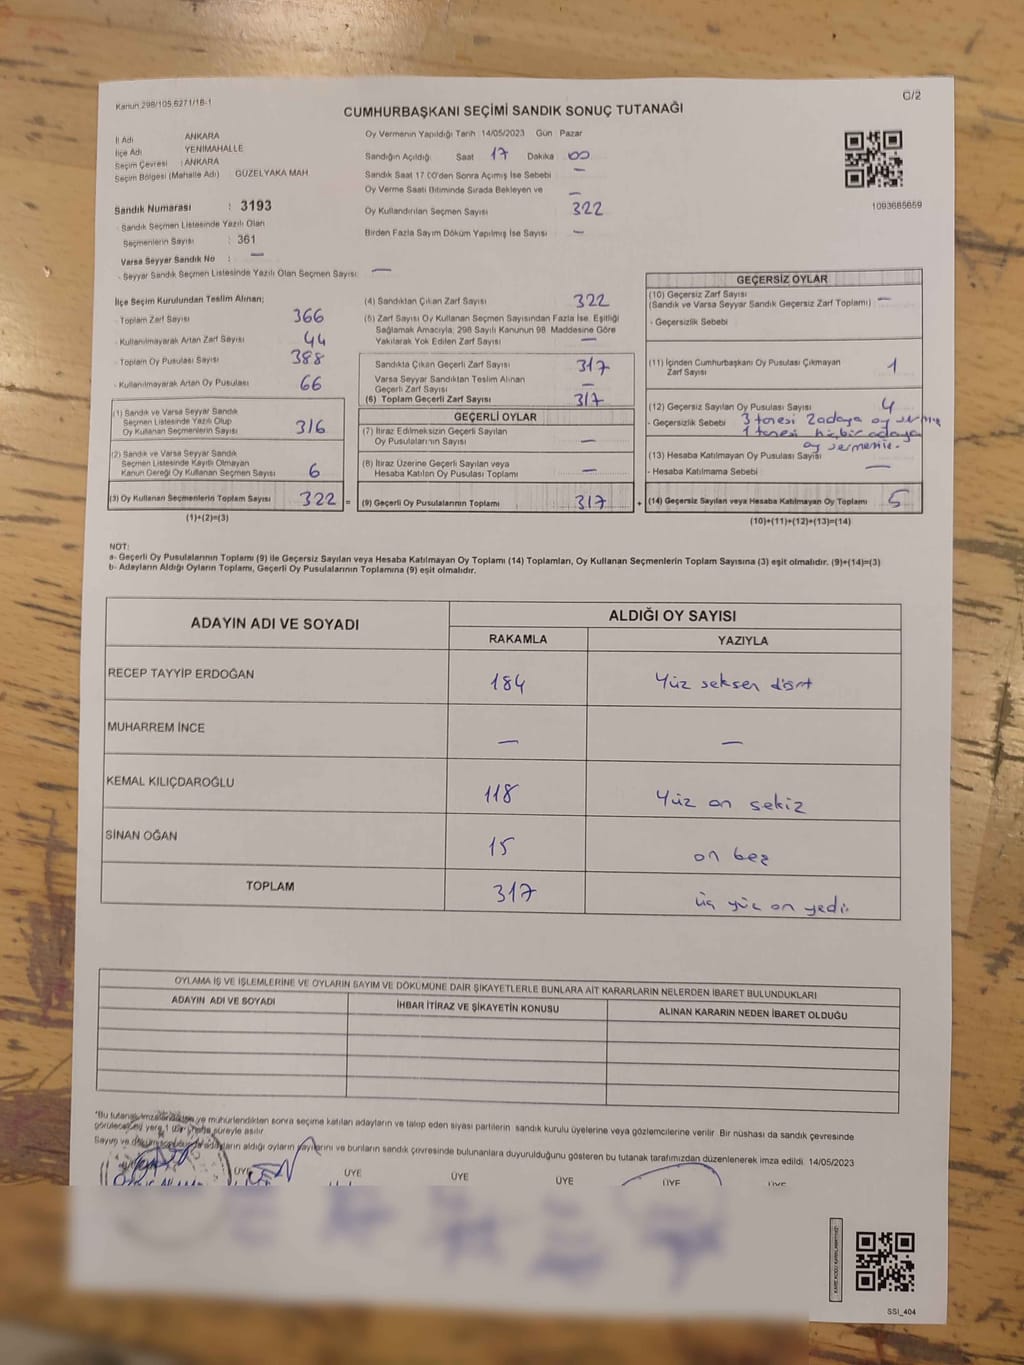 Kanun 298/105,6271/18-1
C/2
CUMHURBAŞKANI SEÇİMİ SANDIK SONUÇ TUTANAĞI
İl Adı ANKARA
İlçe Adı YENİMAHALLE
Seçim Çevresi : ANKARA
Seçim Bölgesi (Mahalle Adı) GÜZELYAKA MAH.
Sandık Numarası : 3193
- Sandık Seçmen Listesinde Yazılı Olan
Seçmenlerin Sayısı : 361
Varsa Seyyar Sandık No : —
- Seyyar Sandık Seçmen Listesinde Yazılı Olan Seçmen Sayısı: —
Oy Vermenin Yapıldığı Tarih : 14/05/2023 Gün : Pazar
Sandığın Açıldığı Saat 17 Dakika 00
Sandık Saat 17:00'den Sonra Açımış İse Sebebi —
Oy Verme Saati Bitiminde Sırada Bekleyen ve
Oy Kullandırılan Seçmen Sayısı —
322
Birden Fazla Sayım Döküm Yapılmış İse Sayısı —
1093685659
İlçe Seçim Kurulundan Teslim Alınan;
- Toplam Zarf Sayısı 366
- Kullanılmayarak Artan Zarf Sayısı 44
- Toplam Oy Pusulası Sayısı 388
- Kullanılmayarak Artan Oy Pusulası 66
(1) Sandık ve Varsa Seyyar Sandık
Seçmen Listesinde Yazılı Olup
Oy Kullanan Seçmenlerin Sayısı 316
(2) Sandık ve Varsa Seyyar Sandık
Seçmen Listesinde Kayıtlı Olmayan
Kanun Gereği Oy Kullanan Seçmen Sayısı 6
(3) Oy Kullanan Seçmenlerin Toplam Sayısı 322 =
(1)+(2)=(3)
(4) Sandıktan Çıkan Zarf Sayısı 322
(5) Zarf Sayısı Oy Kullanan Seçmen Sayısından Fazla İse, Eşitliği
Sağlamak Amacıyla; 298 Sayılı Kanunun 98. Maddesine Göre
Yakılarak Yok Edilen Zarf Sayısı —
Sandıkta Çıkan Geçerli Zarf Sayısı 317
Varsa Seyyar Sandıktan Teslim Alınan
Geçerli Zarf Sayısı —
(6) Toplam Geçerli Zarf Sayısı 317
GEÇERLİ OYLAR
(7) İtiraz Edilmeksizin Geçerli Sayılan
Oy Pusulalarının Sayısı —
(8) İtiraz Üzerine Geçerli Sayılan veya
Hesaba Katılan Oy Pusulası Toplamı —
(9) Geçerli Oy Pusulalarının Toplamı 317 +
GEÇERSİZ OYLAR
(10) Geçersiz Zarf Sayısı
(Sandık ve Varsa Seyyar Sandık Geçersiz Zarf Toplamı) —
- Geçersizlik Sebebi
(11) İçinden Cumhurbaşkanı Oy Pusulası Çıkmayan
Zarf Sayısı 1
(12) Geçersiz Sayılan Oy Pusulası Sayısı 4
- Geçersizlik Sebebi 3 tanesi 2 adaya oy vermiş
1 tanesi hiçbir adaya
oy vermemiş.
(13) Hesaba Katılmayan Oy Pusulası Sayısı —
- Hesaba Katılmama Sebebi
(14) Geçersiz Sayılan veya Hesaba Katılmayan Oy Toplamı 5
(10)+(11)+(12)+(13)=(14)
NOT:
a- Geçerli Oy Pusulalarının Toplamı (9) ile Geçersiz Sayılan veya Hesaba Katılmayan Oy Toplamı (14) Toplamları, Oy Kullanan Seçmenlerin Toplam Sayısına (3) eşit olmalıdır. (9)+(14)=(3)
b- Adayların Aldığı Oyların Toplamı, Geçerli Oy Pusulalarının Toplamına (9) eşit olmalıdır.
ADAYIN ADI VE SOYADI ALDIĞI OY SAYISI
RAKAMLA YAZIYLA
RECEP TAYYİP ERDOĞAN 184 Yüz seksen dört
MUHARREM İNCE — —
KEMAL KILIÇDAROĞLU 118 Yüz on sekiz
SİNAN OĞAN 15 on beş
TOPLAM 317 üç yüz on yedi
OYLAMA İŞ VE İŞLEMLERİNE VE OYLARIN SAYIM VE DÖKÜMÜNE DAİR ŞİKAYETLERLE BUNLARA AİT KARARLARIN NELERDEN İBARET BULUNDUKLARI
ADAYIN ADI VE SOYADI İHBAR İTİRAZ VE ŞİKAYETİN KONUSU ALINAN KARARIN NEDEN İBARET OLDUĞU
*Bu tutanak imzalandıktan ve mühürlendikten sonra seçime katılan adayların ve talep eden siyasi partilerin sandık kurulu üyelerine veya gözlemcilerine verilir. Bir nüshası da sandık çevresinde
görülecek bir yere 1 süreyle asılır.
Sayım ve döküm adayların aldığı oyların sayılarını ve bunların sandık çevresinde bulunanlara duyurulduğunu gösteren bu tutanak tarafımızdan düzenlenerek imza edildi. 14/05/2023
ÜYE ÜYE ÜYE ÜYE ÜYE ÜYE
SSI_404